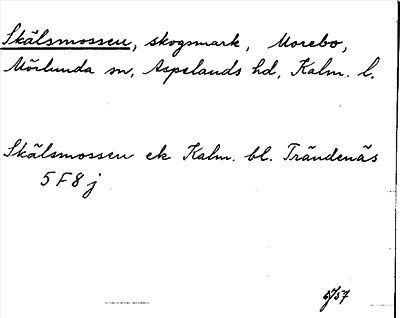 Skälsmossen, skogsmark, Morebo,
Mörlunda sn, Aspelands hd, Kalm. l.
Skälsmossen ek Kalm. bl. Trändenäs
5 F 8 j